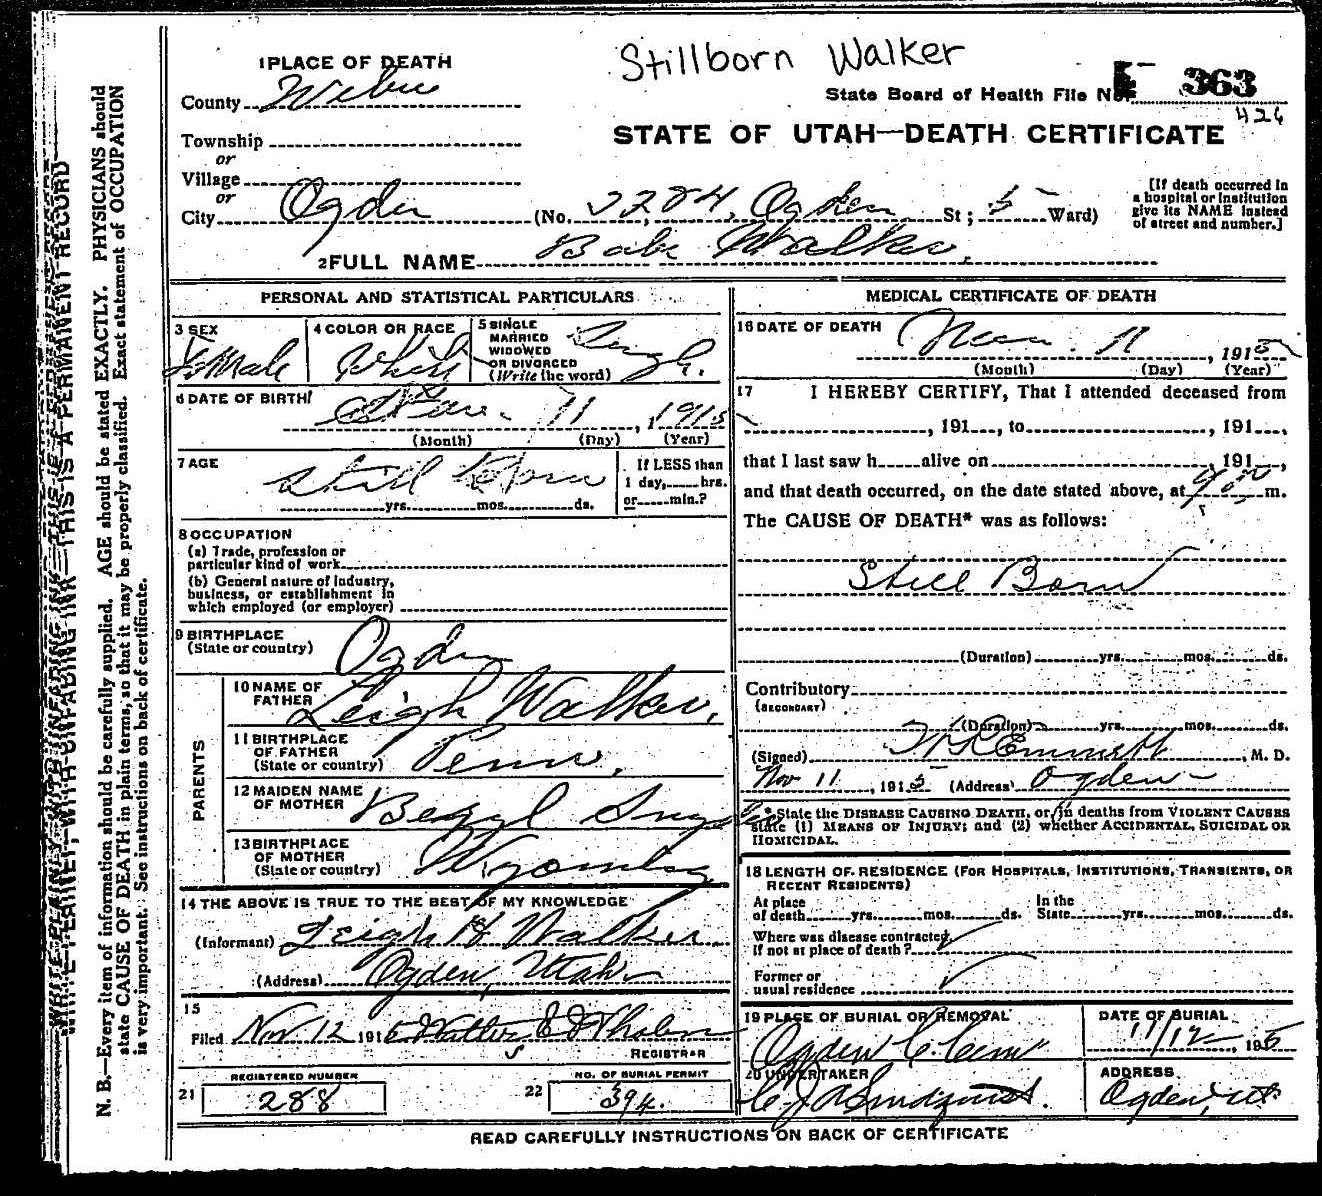 Stillborn Walker
1 PLACE OF DEATH
County Weber
State Board of Health File No. 363
426
STATE OF UTAH—DEATH CERTIFICATE
Township
or
Village
or
City Ogden (No. 2284, Ogden St; 5 Ward)
[If death occurred in
a hospital or institution
give its NAME instead
of street and number.]
2 FULL NAME Babe Walker.
PERSONAL AND STATISTICAL PARTICULARS
3 SEX
Female
4 COLOR OR RACE
White
5 SINGLE
MARRIED
WIDOWED
OR DIVORCED
(Write the word)
Singl.
6 DATE OF BIRTH
Nov. 11, 1915
(Month) (Day) (Year)
7 AGE
Still Born
yrs. mos. ds.
If LESS than
1 day, hrs.
or min.?
8 OCCUPATION
(a) Trade, profession or
particular kind of work
(b) General nature of industry,
business, or establishment in
which employed (or employer)
9 BIRTHPLACE
(State or country)
Ogden
PARENTS
10 NAME OF
FATHER
Leigh Walker.
11 BIRTHPLACE
OF FATHER
(State or country)
Penn.
12 MAIDEN NAME
OF MOTHER
13 BIRTHPLACE
OF MOTHER
(State or country)
Wyoming
14 THE ABOVE IS TRUE TO THE BEST OF MY KNOWLEDGE
(Informant) Leigh H Walker
(Address) Ogden, Utah
15
Filed Nov 12 1915
REGISTRAR
REGISTERED NUMBER
21 288
NO. OF BURIAL PERMIT
22 394.
MEDICAL CERTIFICATE OF DEATH
16 DATE OF DEATH
Nov. 11, 1915
(Month) (Day) (Year)
17 I HEREBY CERTIFY, That I attended deceased from
, 191 , to , 191 ,
that I last saw h alive on 191 ,
and that death occurred, on the date stated above, at m.
The CAUSE OF DEATH* was as follows:
Still Born
(Duration) yrs. mos. ds.
Contributory
(SECONDARY)
(Duration) yrs. mos. ds.
(Signed) , M. D.
Nov 11, 1915 (Address) Ogden
* State the DISEASE CAUSING DEATH, or, in deaths from VIOLENT CAUSES
state (1) MEANS OF INJURY; and (2) whether ACCIDENTAL, SUICIDAL OR
HOMICIDAL.
18 LENGTH OF RESIDENCE (FOR HOSPITALS, INSTITUTIONS, TRANSIENTS, OR
RECENT RESIDENTS)
At place
of death yrs. mos. ds.
In the
State yrs. mos. ds.
Where was disease contracted,
if not at place of death?
Former or
usual residence
19 PLACE OF BURIAL OR REMOVAL
Ogden C. Cem
DATE OF BURIAL
11/12, 1915
20 UNDERTAKER
ADDRESS
Ogden, Ut
READ CAREFULLY INSTRUCTIONS ON BACK OF CERTIFICATE
WRITE PLAINLY, WITH UNFADING INK—THIS IS A PERMANENT RECORD
N. B.—Every item of information should be carefully supplied. AGE should be stated EXACTLY. PHYSICIANS should
state CAUSE OF DEATH in plain terms, so that it may be properly classified. Exact statement of OCCUPATION
is very important. See instructions on back of certificate.